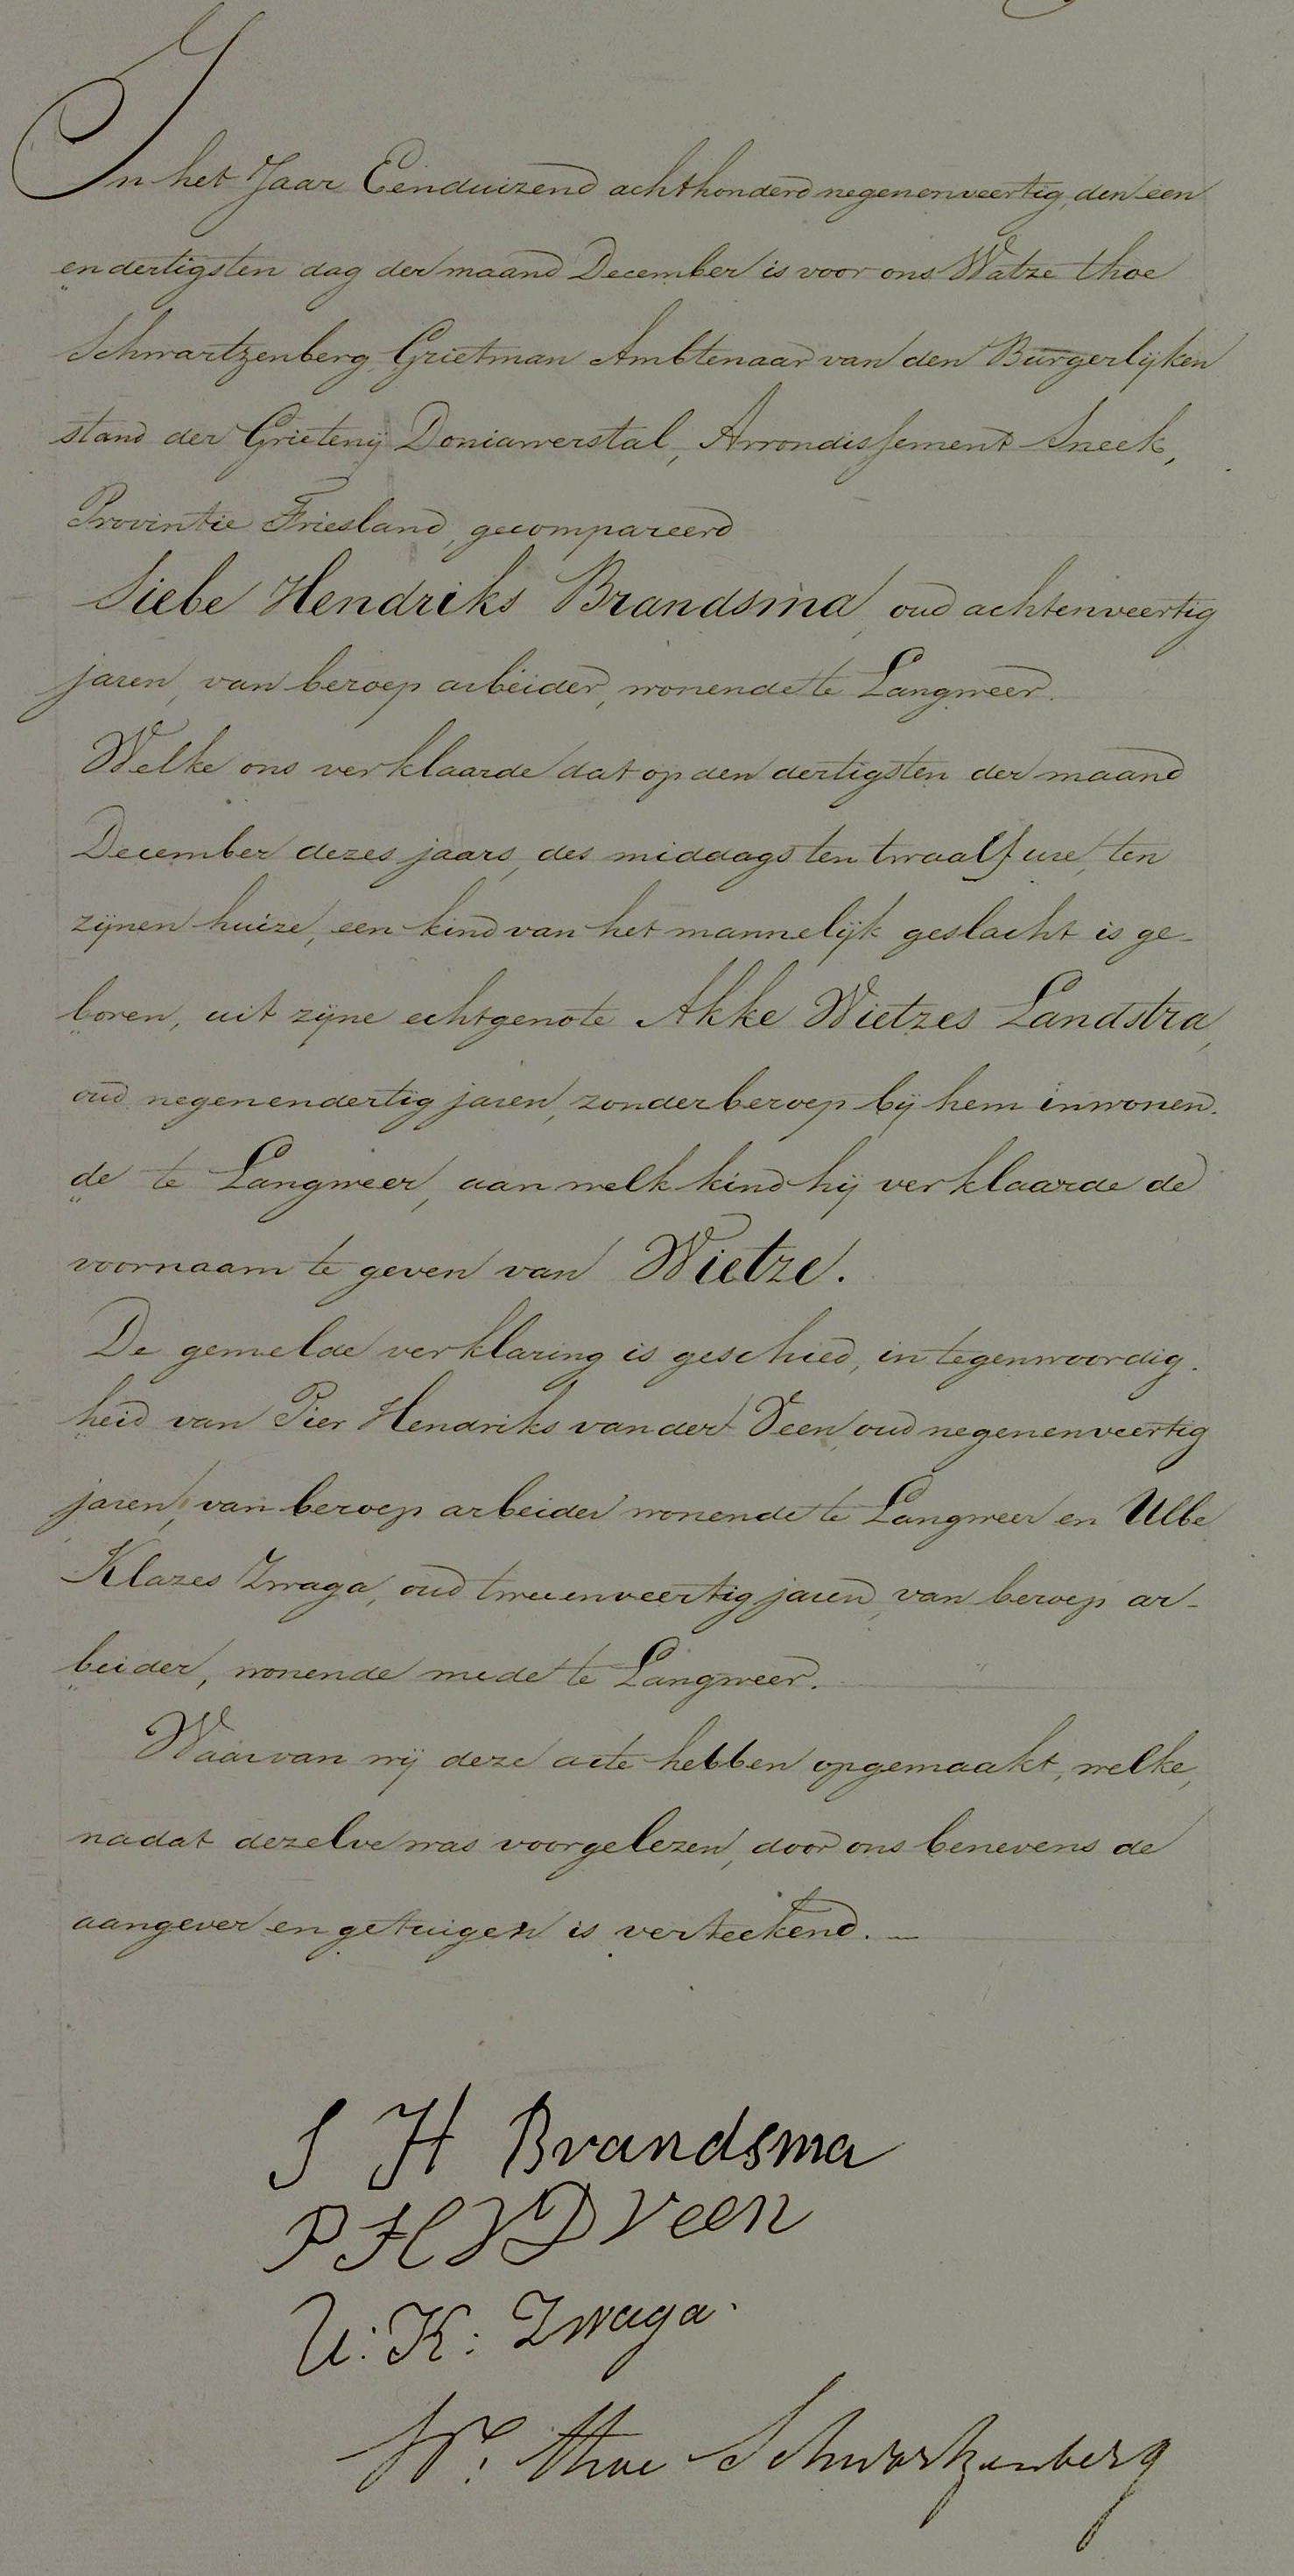 In het Jaar Eenduizend achthonderd negenenveertig, den een
en dertigsten dag der maand December is voor ons Watze thoe
Schwartzenberg Grietman Ambtenaar van den Burgerlijken
stand der Grietenij Doniawerstal, Arrondissement Sneek,
Provintie Friesland, gecompareerd
Siebe Hendriks Brandsma, oud achtenveertig
jaren, van beroep arbeider, wonende te Langweer.
Welke ons verklaarde dat op den dertigsten der maand
December dezes jaars, des middags ten twaalf ure, ten
zijnen huize, een kind van het mannelijk geslacht is ge-
boren, uit zijne echtgenote Akke Wietzes Landstra,
oud negenendertig jaren, zonder beroep bij hem inwonen-
de te Langweer, aan welk kind hij verklaarde de
voornaam te geven van Wietze.
De gemelde verklaring is geschied, in tegenwoordig-
heid van Pier Hendriks van der Veen oud negenenveertig
jaren, van beroep arbeider wonende te Langweer en Ulbe
Klazes Zwaga, oud tweeenveertig jaren, van beroep ar-
beider, wonende mede te Langweer.
Waarvan wij deze acte hebben opgemaakt, welke,
nadat dezelve was voorgelezen, door ons benevens de
aangever en getuigen is verteekend. —
S H Brandsma
P H V D Veen
U: K: Zwaga.
W: thoe Schwartzenberg